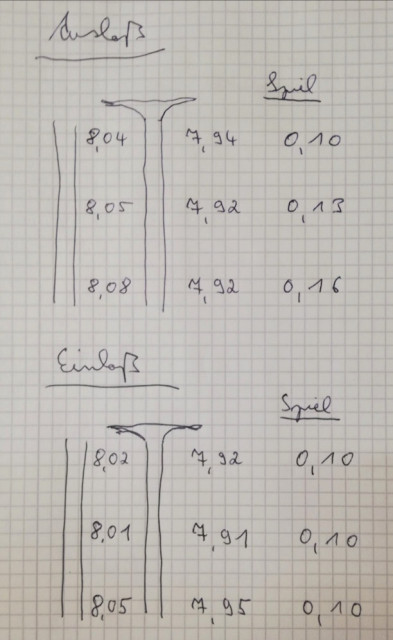 Auslaß
Spiel
8,04 7,94 0,10
8,05 7,92 0,13
8,08 7,92 0,16
Einlaß
Spiel
8,02 7,92 0,10
8,01 7,91 0,10
8,05 7,95 0,10